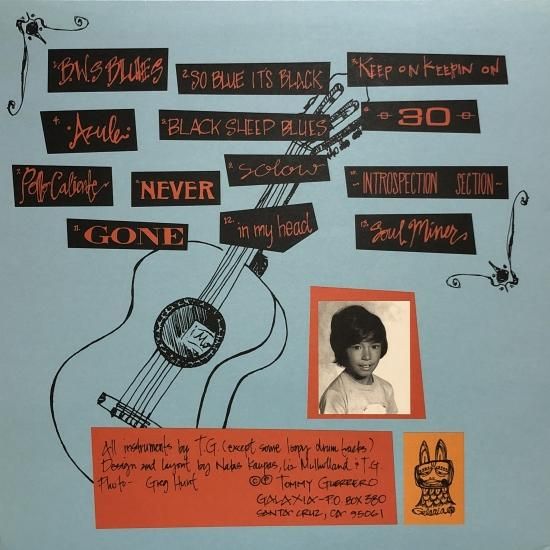 1. B.W.S BLUES
2. SO BLUE IT'S BLACK
3. KEEP ON KEEPIN ON
4. Azule
5. BLACK SHEEP BLUES
6. 30
7. Pollo Caliente
8. Solow
9. NEVER
10. INTROSPECTION SECTION
11. GONE
12. in my head
13. Soul Miner
All instruments by T.G. (except some loopy drum tracks)
Design and layout by Natas Kaupas, Liz Mulholland & T.G.
Photo - Greg Hunt
©℗ TOMMY GUERRERO
GALAXIA - P.O. BOX 380
SANTA CRUZ, CA 95061
Galaxia